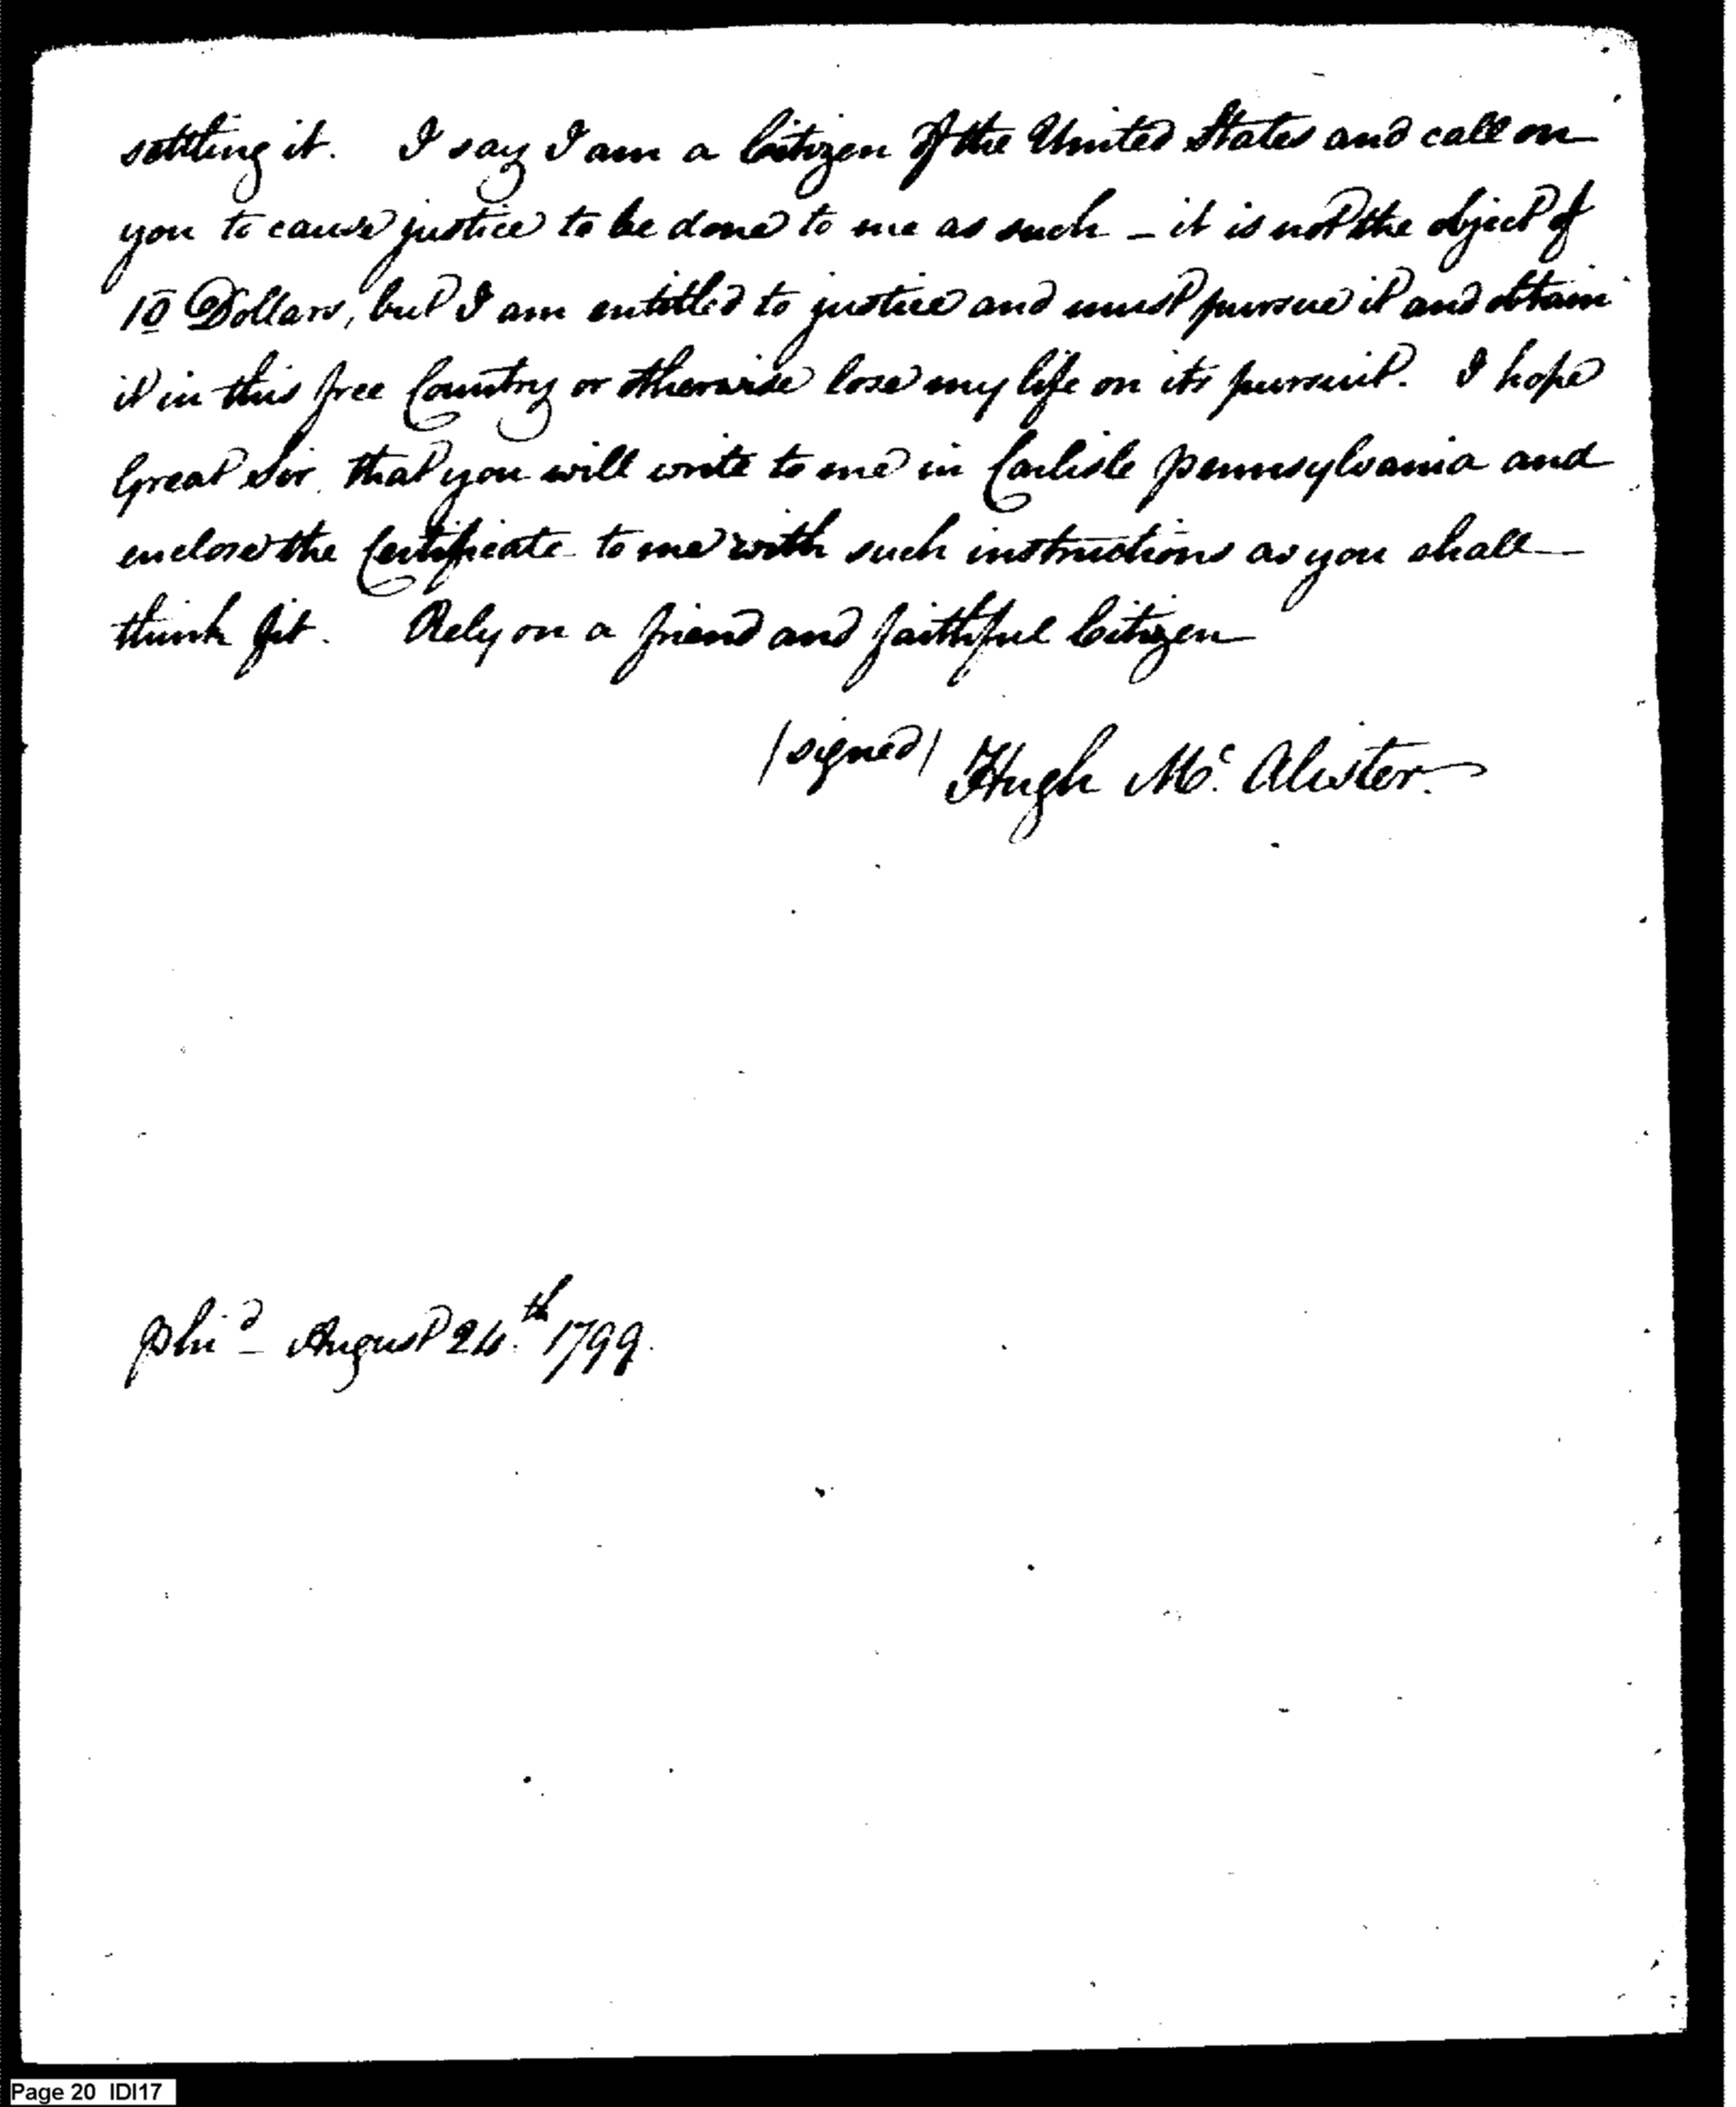 settling it. I say I am a Citizen of the United States and call on
you to cause justice to be done to me as such - it is not the object of
10 Dollars, but I am entitled to justice and must pursue it and obtain
it in this free Country or otherwise lose my life on its pursuit. I hope
Great Sir, that you will write to me in Carlisle pennsylvania and
enclose the Certificate to me with such instructions as you shall
think fit. Rely on a friend and faithful Citizen
(signed) Hugh Mc. Alister.
Phi a August 24.th 1799.
Page 20 IDI17